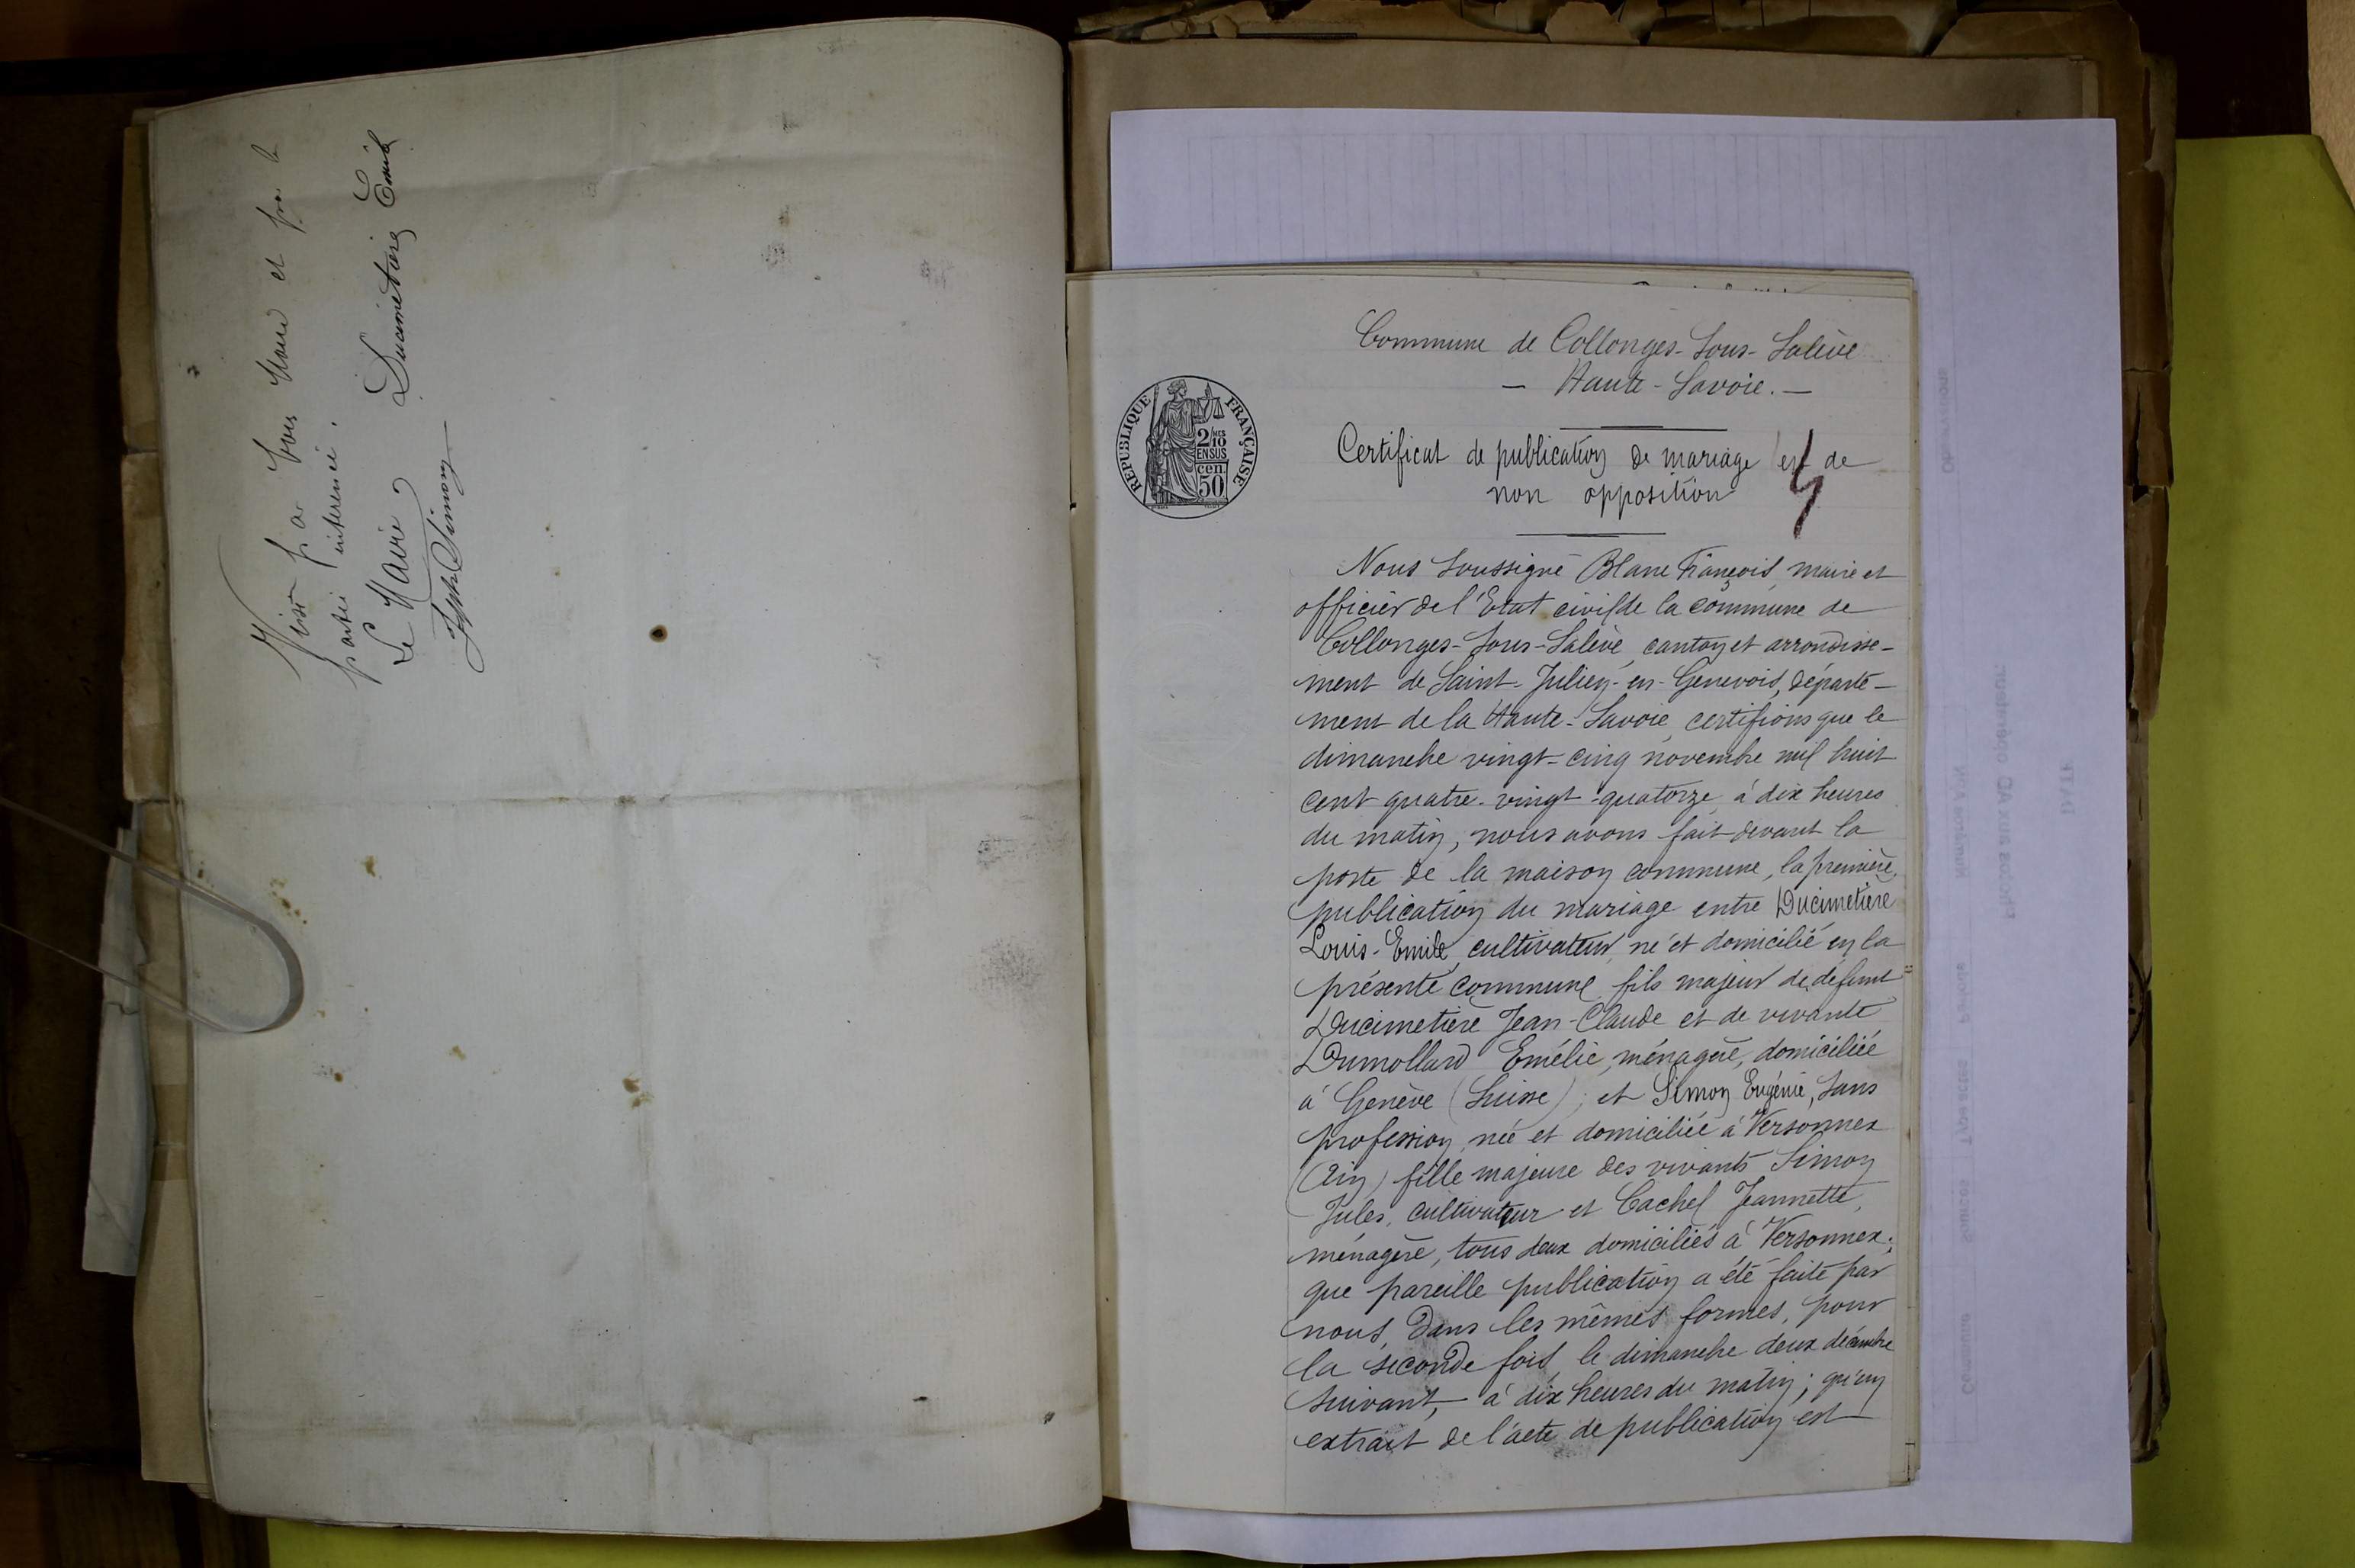 Visé par Nous Maire et par la
partie intéressée.
Le Maire Ducimetière Emile
Simon
Commune de Collonges-Sous-Salève
— Haute-Savoie. —
REPUBLIQUE FRANÇAISE
2/10 MES
EN SUS
cen
50
Certificat de publication de mariage et de
non opposition
Nous soussigné Blanc François, maire et
officier de l'Etat civil de la commune de
Collonges-Sous-Salève, canton et arrondisse-
ment de Saint-Julien-en-Genevois, départe-
ment de la Haute-Savoie, certifions que le
dimanche vingt-cinq novembre mil huit
cent quatre-vingt-quatorze à dix heures
du matin, nous avons fait devant la
porte de la maison commune, la première
publication du mariage entre Ducimetière
Louis-Emile, cultivateur, né et domicilié en la
présente commune, fils majeur de défunt
Ducimetière Jean-Claude et de vivante
Dumollard Emélie, ménagère, domiciliée
à Genève (Suisse); et Simon Eugénie, sans
profession, née et domiciliée à Versonnex
(Ain) fille majeure des vivants Simon
Jules, cultivateur et Cachel Jeannette,
ménagère, tous deux domiciliés à Versonnex;
que pareille publication a été faite par
nous, dans les mêmes formes, pour
la seconde fois, le dimanche deux décembre
suivant, à dix heures du matin; qu'un
extrait de l'acte de publication est
Photos aux AC opérateur:
DATE